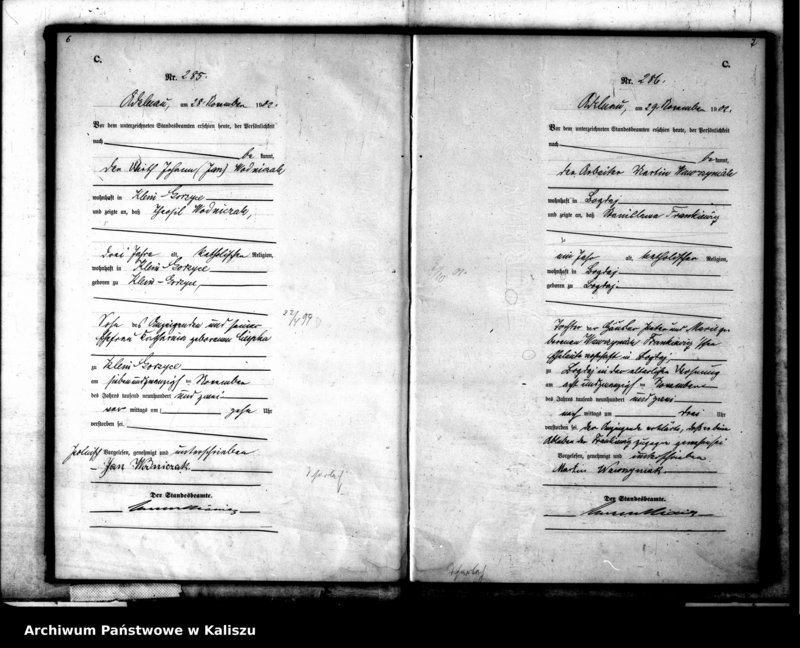 6
C.
Nr. 285.
Adelnau, am 28. November 1902.
Vor dem unterzeichneten Standesbeamten erschien heute, der Persönlichkeit
nach
be kannt,
der Wirth Johann (Jan) Wodniczak
wohnhaft in Klein Gorzyce
und zeigte an, daß Theofil Wodniczak,
drei Jahre alt, katholischer Religion,
wohnhaft in Klein Gorzyce
geboren zu Klein Gorzyce,
Sohn des Anzeigenden und seiner
Ehefrau Katharina geborenen
zu Klein Gorzyce
am siebenundzwanzigsten November
des Jahres tausend neunhundert und zwei
vor mittags um zehn Uhr
verstorben sei.
polnisch Vorgelesen, genehmigt und unterschrieben
Jan Wodniczak
Der Standesbeamte.
7
C.
Nr. 286.
Adelnau, am 29. November 1902.
Vor dem unterzeichneten Standesbeamten erschien heute, der Persönlichkeit
nach
be kannt,
der Arbeiter Martin Wawrzyniak
wohnhaft in Bogdaj
und zeigte an, daß Stanislawa Frankiewicz
ein Jahr alt, katholischer Religion,
wohnhaft in Bogdaj
geboren zu Bogdaj
Tochter der Händler Peter und Maria ge-
borenen Wawrzyniak Frankiewicz'schen
Eheleute wohnhaft in Bogdaj,
zu Bogdaj in der elterlichen Wohnung
am achtundzwanzigsten November
des Jahres tausend neunhundert und zwei
nach mittags um drei Uhr
verstorben sei. Der Anzeigende erklärte, daß er beim
Ableben der Frankiewicz zugegen gewesen sei
Vorgelesen, genehmigt und unterschrieben
Martin Wawrzyniak
Der Standesbeamte.
Archiwum Państwowe w Kaliszu